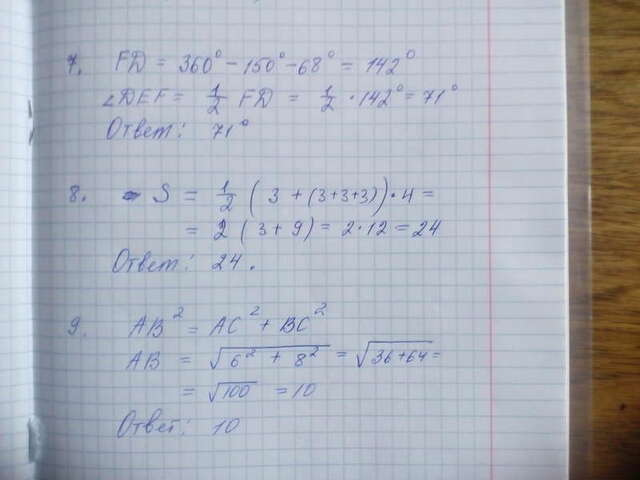 7. FD = 360° - 150° - 68° = 142°
∠DEF = 1/2 FD = 1/2 · 142° = 71°
Ответ: 71°
8. S = 1/2 (3 + (3+3+3)) · 4 =
= 2 (3 + 9) = 2 · 12 = 24
Ответ: 24.
9. AB² = AC² + BC²
AB = √(6² + 8²) = √(36+64) =
= √100 = 10
Ответ: 10